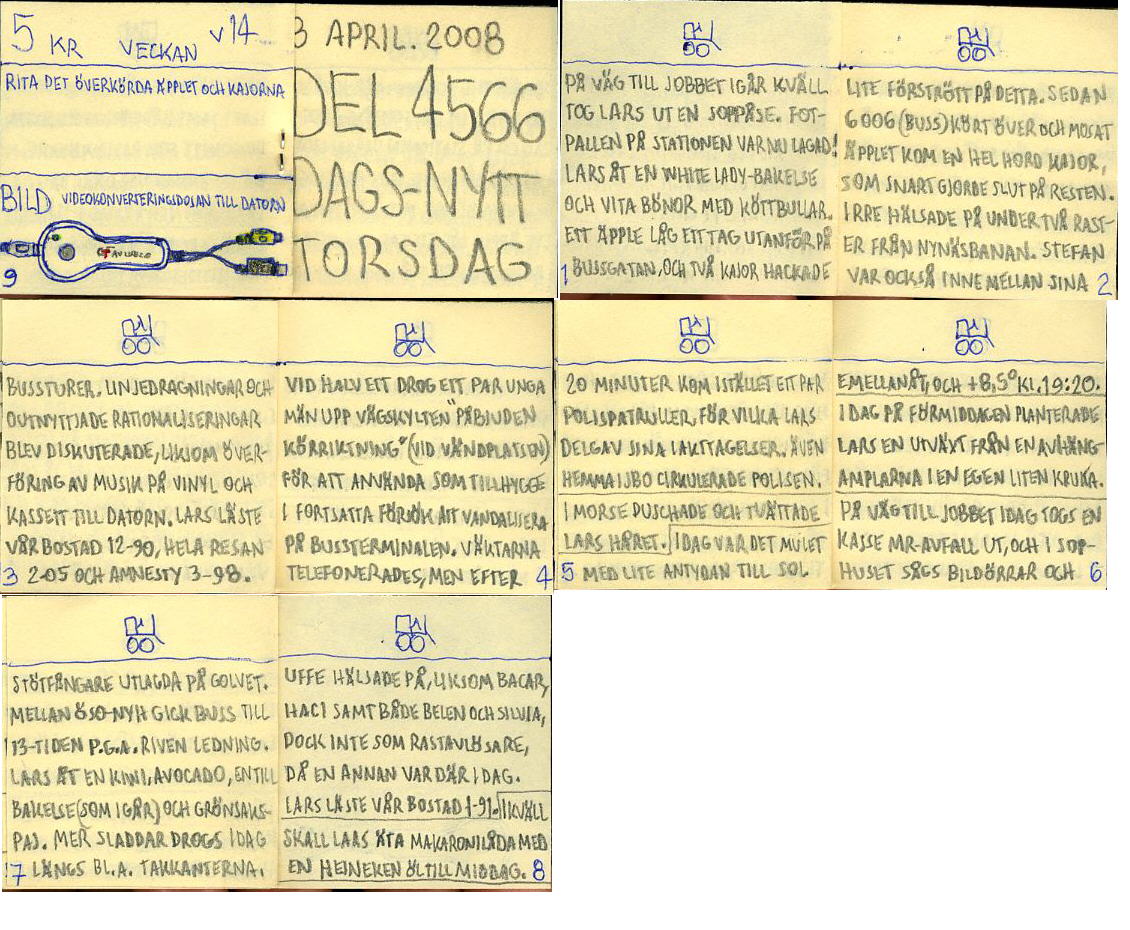 5 KR VECKAN V14
RITA DET ÖVERKÖRDA ÄPPLET OCH KAJORNA
!
BILD VIDEOKONVERTERINGSDOSAN TILL DATORN
9
3 APRIL. 2008
DEL 4566
DAGS-NYTT
TORSDAG
PÅ VÄG TILL JOBBET IGÅR KVÄLL
TOG LARS UT EN SOPPÅSE. FOT-
PALLEN PÅ STATIONEN VAR NU LAGAD!
LARS ÅT EN WHITE LADY-BAKELSE
OCH VITA BÖNOR MED KÖTTBULLAR.
ETT ÄPPLE LÅG ETT TAG UTANFÖR PÅ
1 BUSSGATAN, OCH TVÅ KAJOR HACKADE
LITE FÖRSTRÖTT PÅ DETTA. SEDAN
6006 (BUSS) KÖRT ÖVER OCH MOSAT
ÄPPLET KOM EN HEL HORD KAJOR,
SOM SNART GJORDE SLUT PÅ RESTEN.
IRRE HÄLSADE PÅ UNDER TVÅ RAST-
ER FRÅN NYNÄSBANAN. STEFAN
VAR OCKSÅ INNE MELLAN SINA 2
BUSSTURER. LINJEDRAGNINGAR OCH
OUTNYTTJADE RATIONALISERINGAR
BLEV DISKUTERADE, LIKSOM ÖVER-
FÖRING AV MUSIK PÅ VINYL OCH
KASSETT TILL DATORN. LARS LÄSTE
VÅR BOSTAD 12-90, HELA RESAN
3 2-05 OCH AMNESTY 3-98.
VID HALV ETT DROG ETT PAR UNGA
MÄN UPP VÄGSKYLTEN "PÅBJUDEN
KÖRRIKTNING" (VID VÄNDPLATSEN)
FÖR ATT ANVÄNDA SOM TILLHYGGE
I FORTSATTA FÖRSÖK ATT VANDALISERA
PÅ BUSSTERMINALEN. VÄKTARNA
TELEFONERADES, MEN EFTER 4
20 MINUTER KOM ISTÄLLET ETT PAR
POLISPATRULLER, FÖR VILKA LARS
DELGAV SINA IAKTTAGELSER. ÄVEN
HEMMA I JBO CIRKULERADE POLISEN.
I MORSE DUSCHADE OCH TVÄTTADE
LARS HÅRET. IDAG VAR DET MULET
5 MED LITE ANTYDAN TILL SOL
EMELLANÅT, OCH +8,5° KL. 19:20.
IDAG PÅ FÖRMIDDAGEN PLANTERADE
LARS EN UTVÄXT FRÅN EN AV HÄNG-
AMPLARNA I EN EGEN LITEN KRUKA.
PÅ VÄG TILL JOBBET IDAG TOGS EN
KASSE MR-AVFALL UT, OCH I SOP-
HUSET SÅGS BILDÖRRAR OCH 6
STÖTFÅNGARE UTLAGDA PÅ GOLVET.
MELLAN ÖSO-NYH GICK BUSS TILL
13-TIDEN P.G.A. RIVEN LEDNING.
LARS ÅT EN KIWI, AVOCADO, EN TILL
BAKELSE (SOM IGÅR) OCH GRÖNSAKS-
PAJ. MER SLADDAR DROGS IDAG
7 LÄNGS BL.A. TAKKANTERNA.
UFFE HÄLSADE PÅ, LIKSOM BACAR,
HACI SAMT BÅDE BELEN OCH SILVIA,
DOCK INTE SOM RASTAVLÖSARE,
DÅ EN ANNAN VAR DÄR IDAG.
LARS LÄSTE VÅR BOSTAD 1-91. IKVÄLL
SKALL LARS ÄTA MAKARONILÅDA MED
EN HEINEKEN ÖL TILL MIDDAG. 8